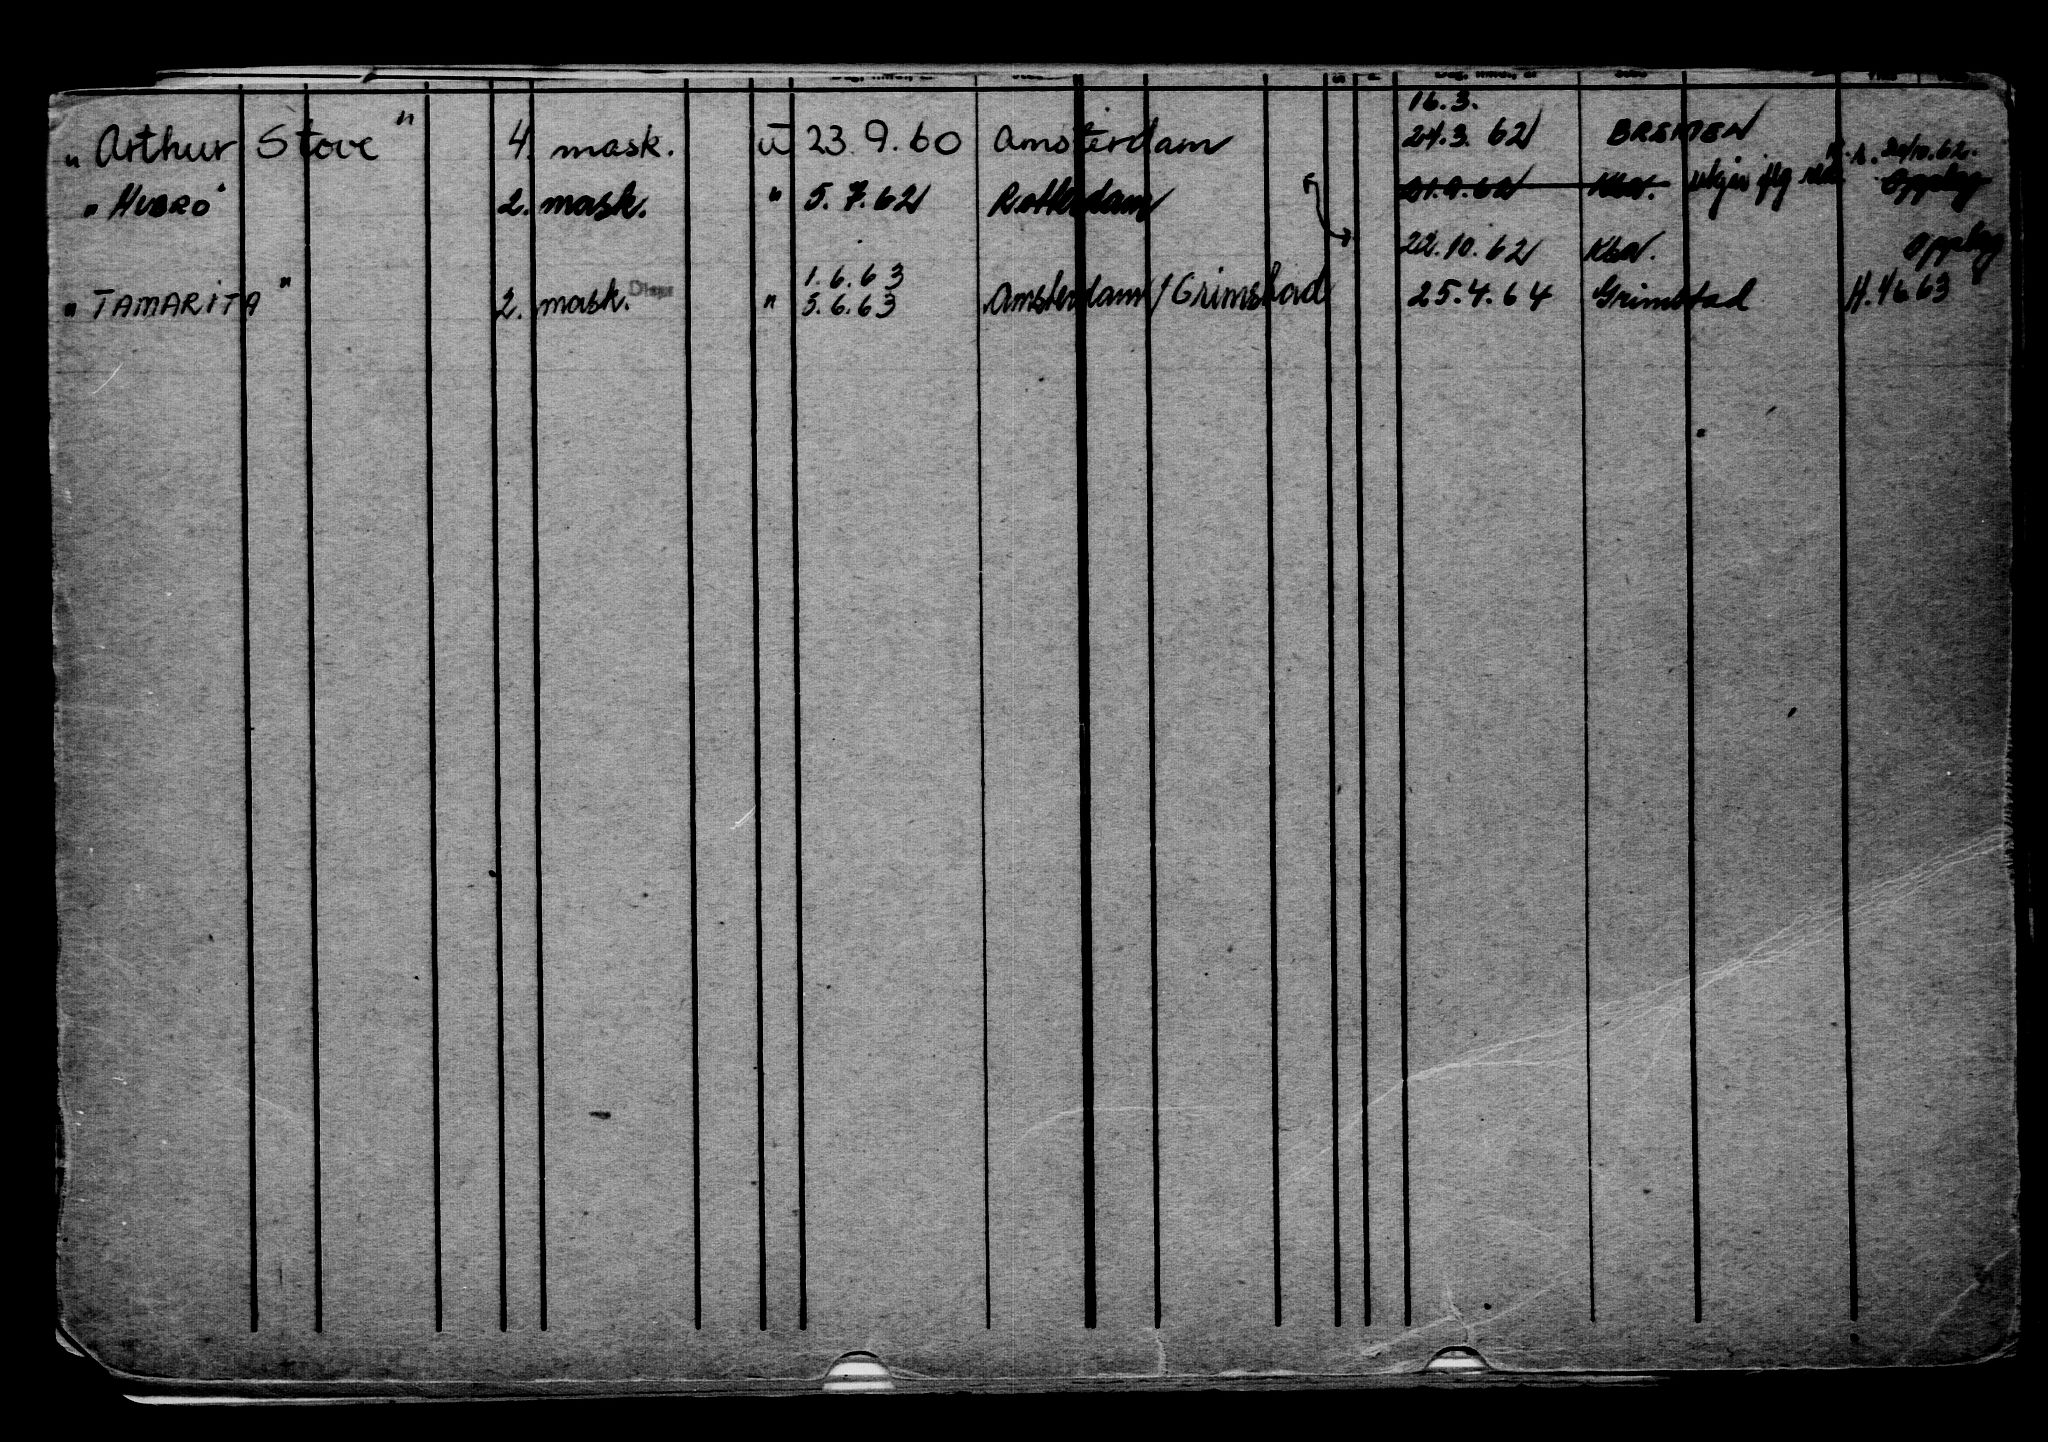 16.3.
„ Arthur Stove " 4. mask. u 23.9.60 Amsterdam 24.3.62 BREMEN
24/10.62.
„ HUBRO " 2. mask. " 5.7.62 Rotterdam 21.9.62 Kbn. utgår Opplag
22.10.62 Kbn. Opplag
1.6.63
„ TAMARITA " 2. mask. Disp " 5.6.63 Amsterdam/Grimstad 25.4.64 Grimstad H. 4/6 63